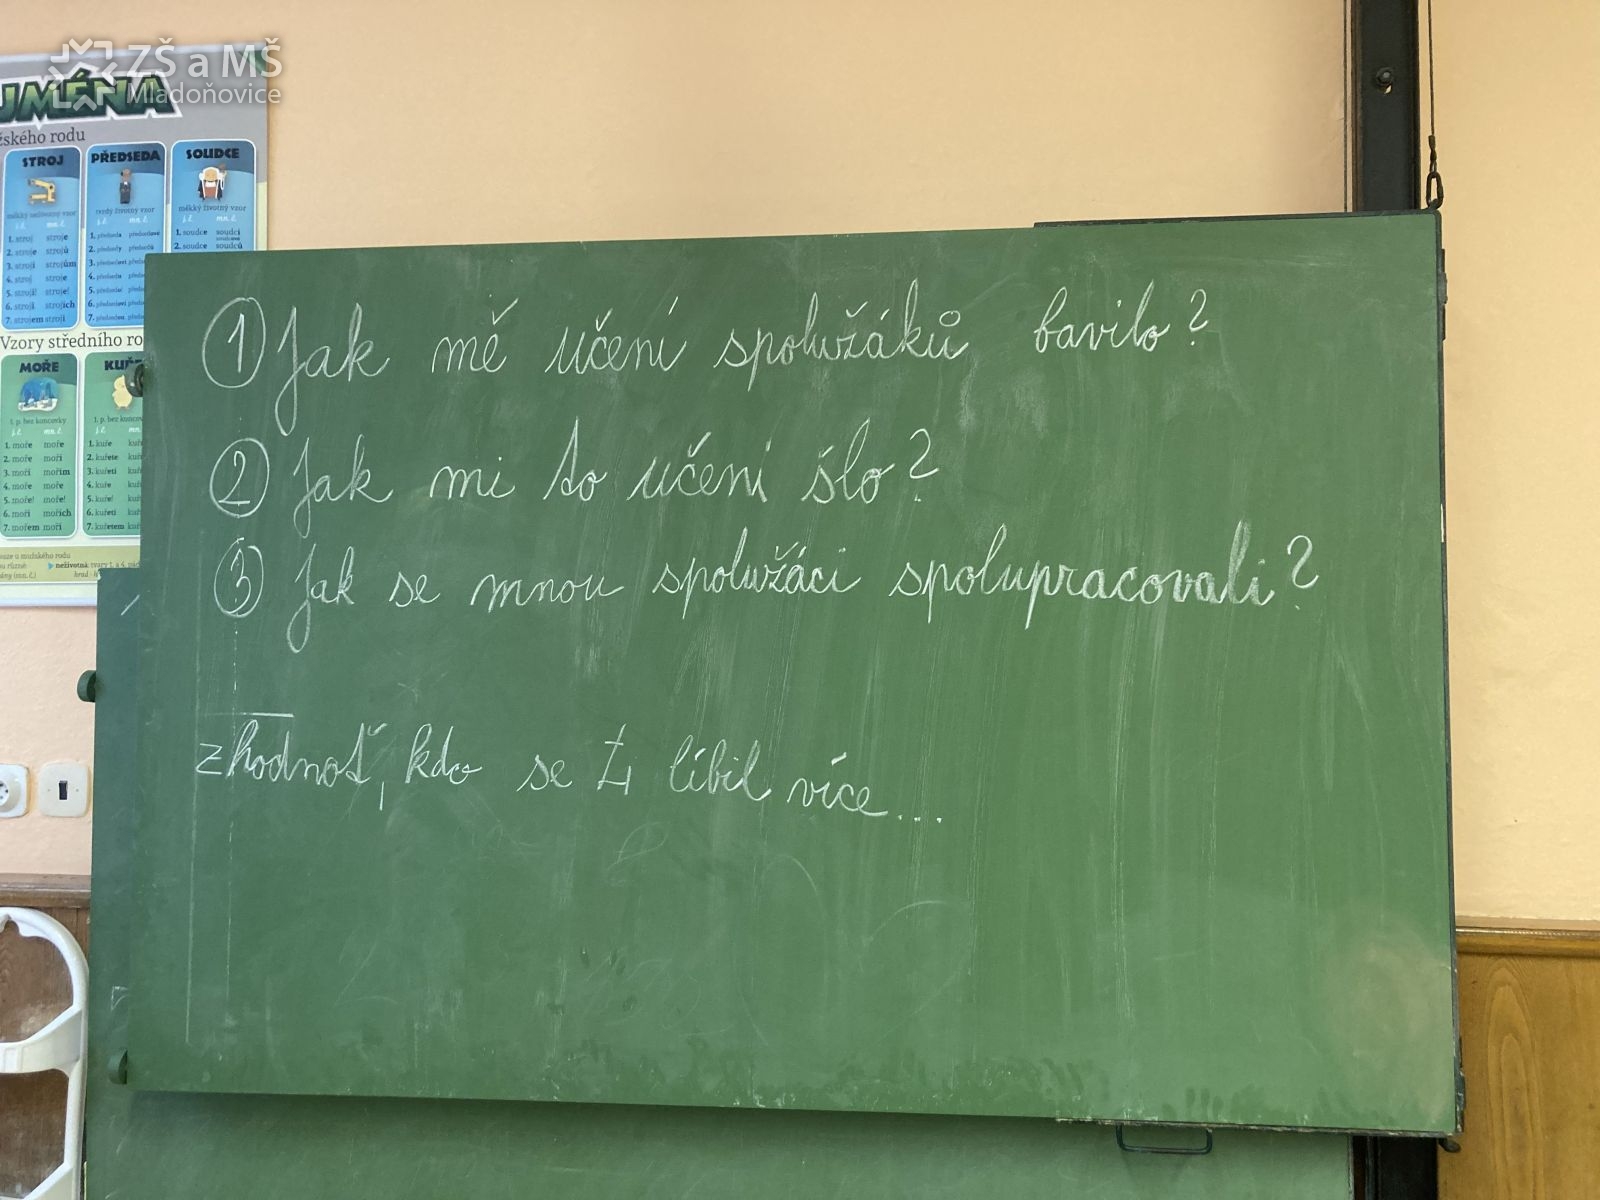 ZŠ a MŠ
Mladoňovice
UMÉNA
žského rodu
STROJ
měkký neživotný vzor
j. č. mn. č.
1. stroj stroje
2. stroje strojů
3. stroji strojům
4. stroj stroje
5. stroji! stroje!
6. stroji strojích
7. strojem stroji
PŘEDSEDA
tvrdý životný vzor
j. č. mn. č.
1. předseda předsedové
2. předsedy předsedů
SOUDCE
měkký životný vzor
j. č. mn. č.
1. soudce soudci
soudcové
2. soudce soudců
Vzory středního ro
MOŘE
1. p. bez koncovky
j. č. mn. č.
1. moře moře
2. moře moří
3. moři mořím
4. moře moře
5. moře! moře!
6. moři mořích
7. mořem moři
KUŘ
1. p. bez koncov
j. č.
1. kuře kuř
2. kuřete kuř
3. kuřeti kuř
4. kuře kuř
5. kuře! kuř
6. kuřeti kuř
7. kuřetem kuř
1 Jak mě učení spolužáků bavilo?
2 Jak mi to učení šlo?
3 Jak se mnou spolužáci spolupracovali?
zhodnoť, kdo se Ti líbil více...